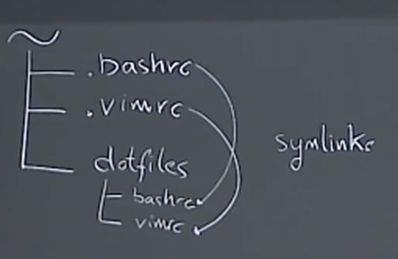 ~
.bashrc
.vimrc
dotfiles
bashrc
vimrc
symlinks